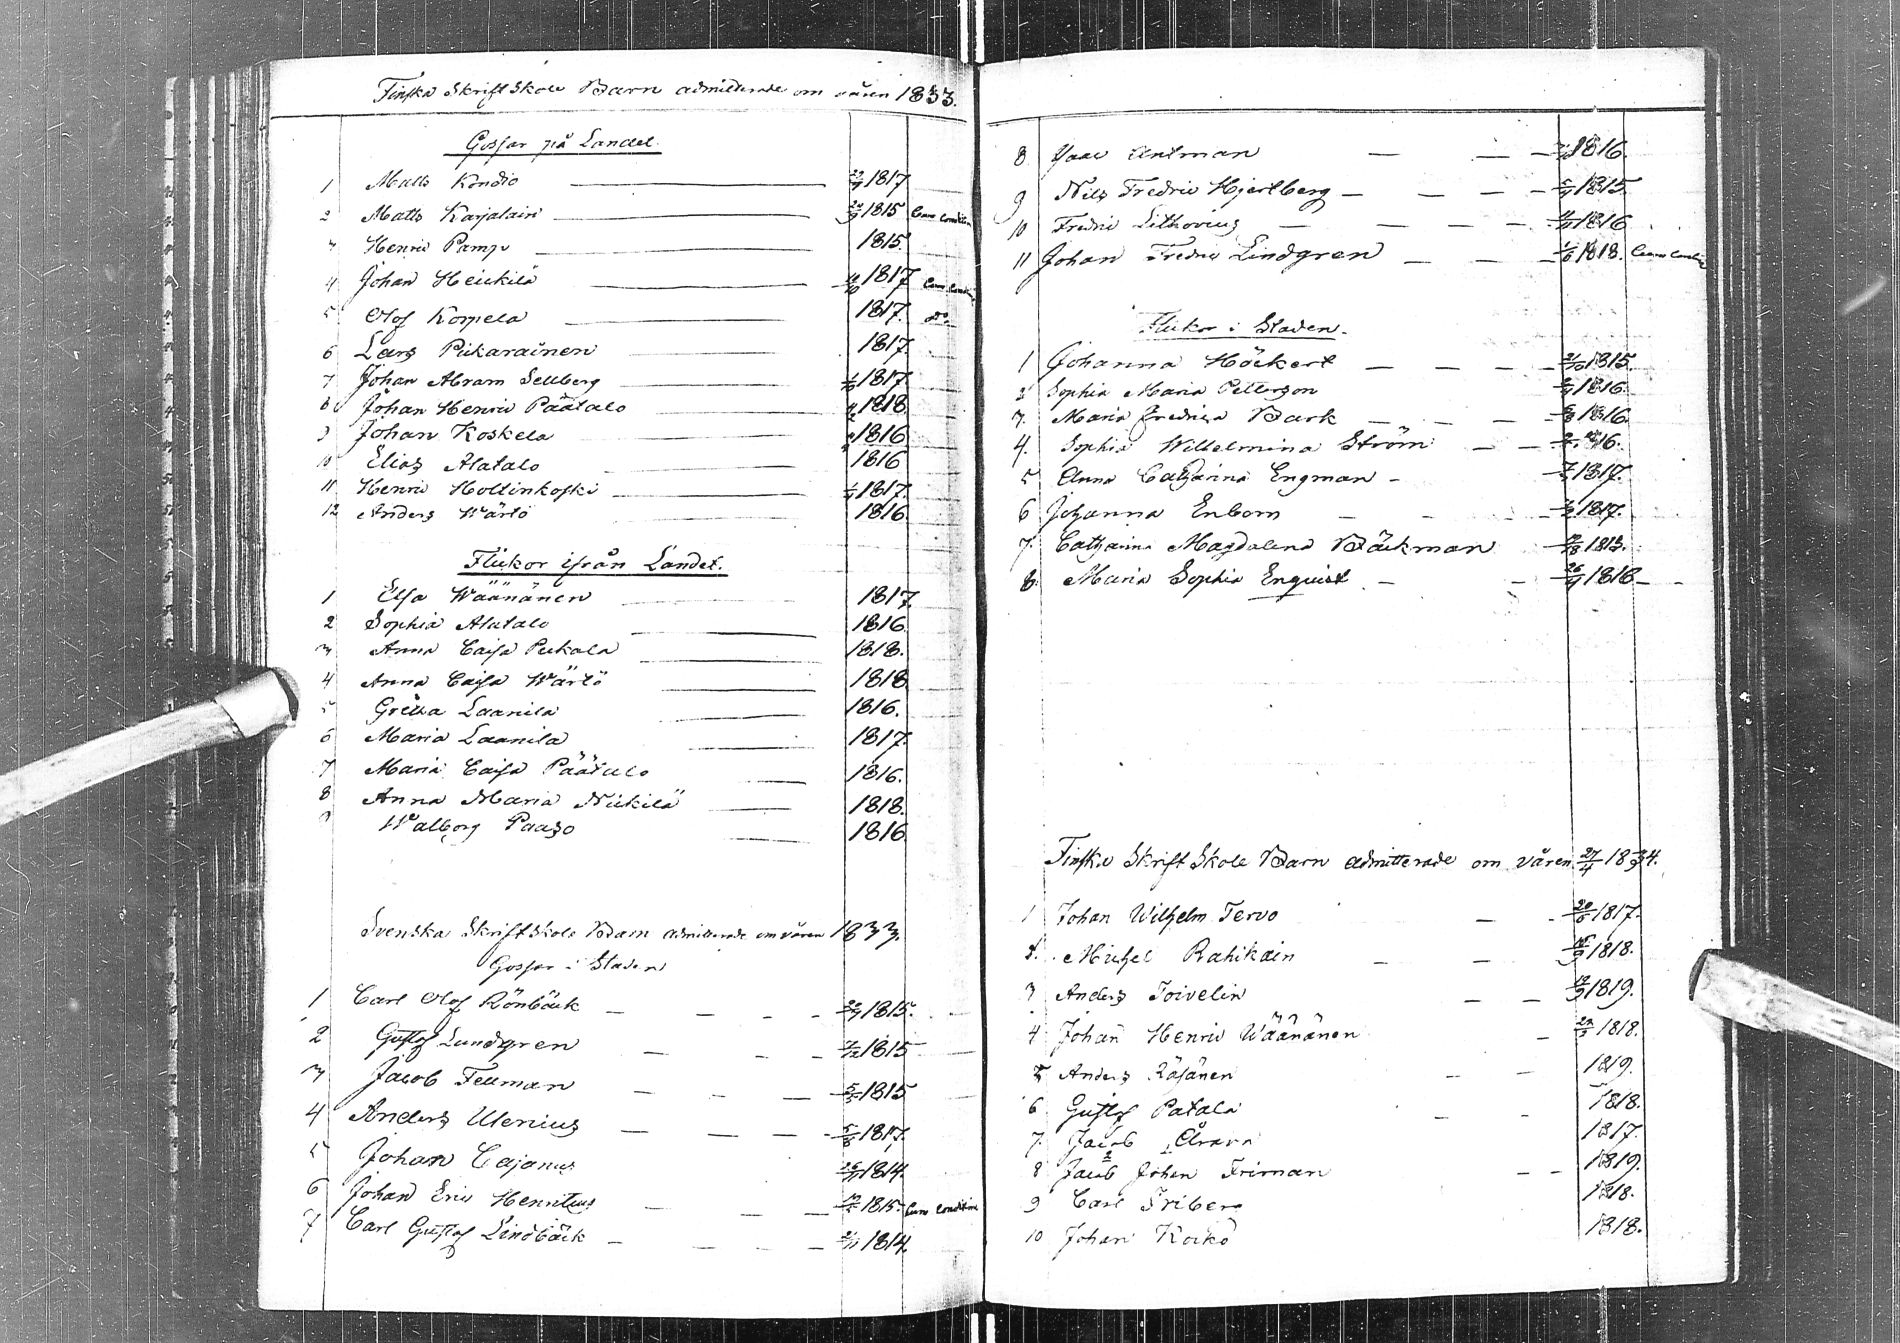 Finska Skrift Skole Barn admitterade om våren 1833.
Gossar på Landet.
1 Matts Kondio 1817
2 Matts Karjalain 1815 Cum Condition
3 Henric Pamp 1815.
4 Johan Heickilä 1817 Cum Condit
5 Olof Korpela 1817. do
6 Lars Pikarainen 1817
7 Johan Abram Sellberg 1817
8 Johan Henric Päätalo 1818
9 Johan Koskela 1816
10 Elias Alatalo 1816
11 Henric Hollinkoski 1817.
12 Anders Wärlö 1816
Flickor ifrån Landet.
1 Elsa Wäänänen 1817.
2 Sophia Alatalo 1816
3 Anna Caisa Pukala 1818.
4 Anna Caisa Wärlö 1818
5 Greta Laanila 1816.
6 Maria Laanila 1817.
7 Maria Caisa Päätalo 1816.
8 Anna Maria Nickilä 1818.
9 Walborg Paaso 1816
Svenska Skrift Skole Barn admitterade om våren 1833.
Gossar i Staden
1 Carl Olof Rönbäck 1815.
2 Gustof Lundgren 7/12 1815
3 Jacob Fellman 1815
4 Anders Ulenius 5/8 1817.
5 Johan Cajanus 1814.
6 Johan Eric Henritius 1815. Cum Condition
7 Carl Gustof Lindbäck 1814.
8 Isaac Antman 1816.
9 Nils Fredric Hjertberg 1815
10 Fredric Lithovius 1816
11 Johan Fredric Lindgren 1818. Cum Condit
Flickor i Staden.
1 Johanna Höckert 1815.
2 Sophia Maria Petterson 1816
3. Maria Fredrica Bark 1816.
4. Sophia Wilhelmina Ström 1816.
5 Anna Catharina Engman 1817.
6 Johanna Enbom 1817.
7. Catharina Magdalena Bäckman 1815.
8. Maria Sophia Enquist 1818
Finska Skrift Skole Barn admitterade om våren 27/4 1834.
1 Johan Wilhelm Tervo 20/6 1817.
2. Michel Rahikain 1818.
3 Anders Toivelin 1819.
4 Johan Henric Wäänänen 1818.
5 Anders Räsänen 1819.
6 Gustof Patala 1818.
7. Jacob 1817.
8 Jacob Johan Friman 1819.
9 Carl Friberg 1818.
10 Johan Koiko 1818.